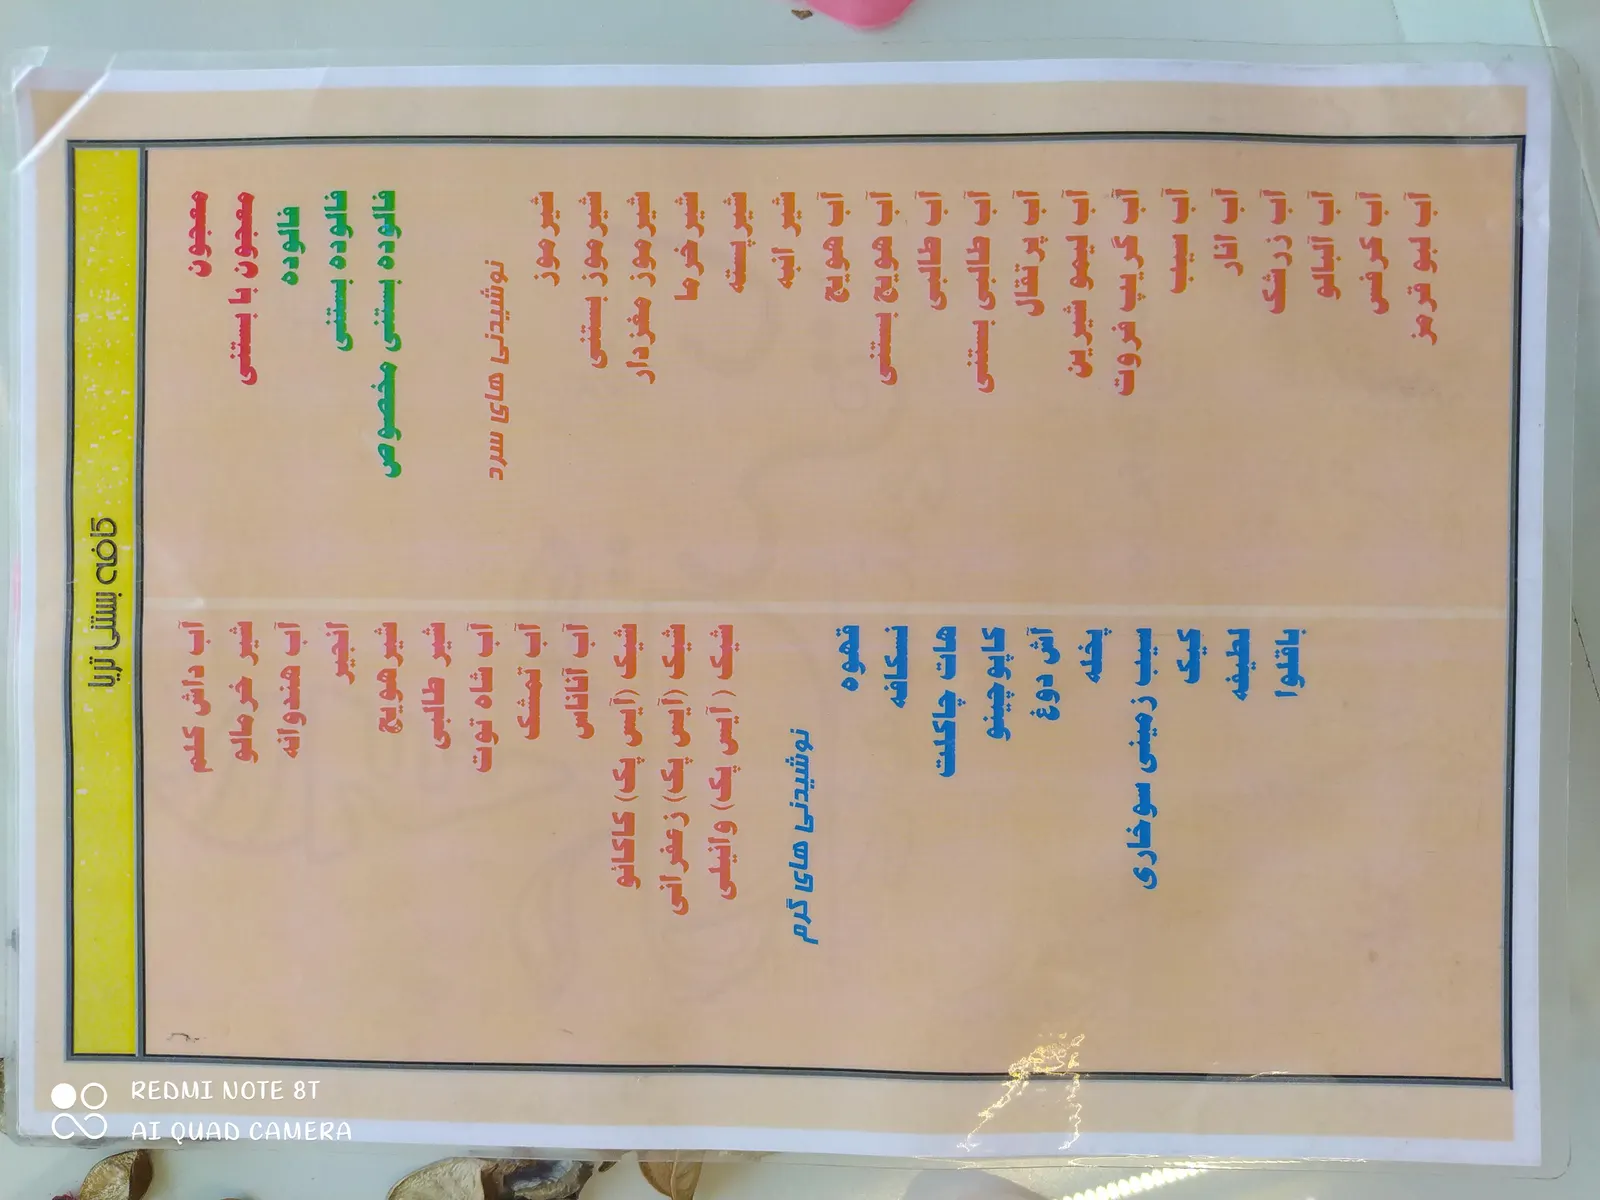 کافه بستنی تریا
معجون
معجون با بستنی
فالوده
فالوده بستنی
فالوده بستنی مخصوص
نوشیدنی های سرد
شیر موز
شیر موز بستنی
شیر موز مغزدار
شیر خرما
شیر پسته
شیر انبه
آب هویج
آب هویج بستنی
آب طالبی
آب طالبی بستنی
آب پرتقال
آب لیمو شیرین
آب گریپ فروت
آب سیب
آب انار
آب زرشک
آب آلبالو
آب کرفس
آب لبو قرمز
آب داش کلم
شیر خرمالو
آب هندوانه
انجیر
شیر هویج
شیر طالبی
آب شاه توت
آب تمشک
آب آناناس
شیک (آیس پک) کاکائو
شیک (آیس پک) زعفرانی
شیک (آیس پک) وانیلی
نوشیدنی های گرم
قهوه
نسکافه
هات چاکلت
کاپوچینو
آش دوغ
پخله
سیب زمینی سوخاری
کیک
لطیفه
باقلوا
REDMI NOTE 8T
AI QUAD CAMERA